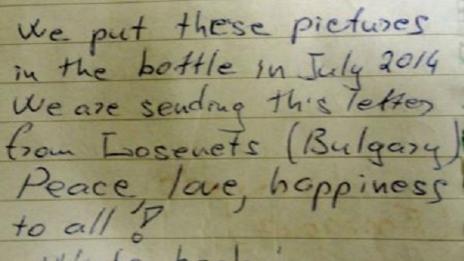 We put these pictures
in the bottle in July 2014
We are sending this letter
from Losenets (Bulgary)
Peace, love, happiness
to all!